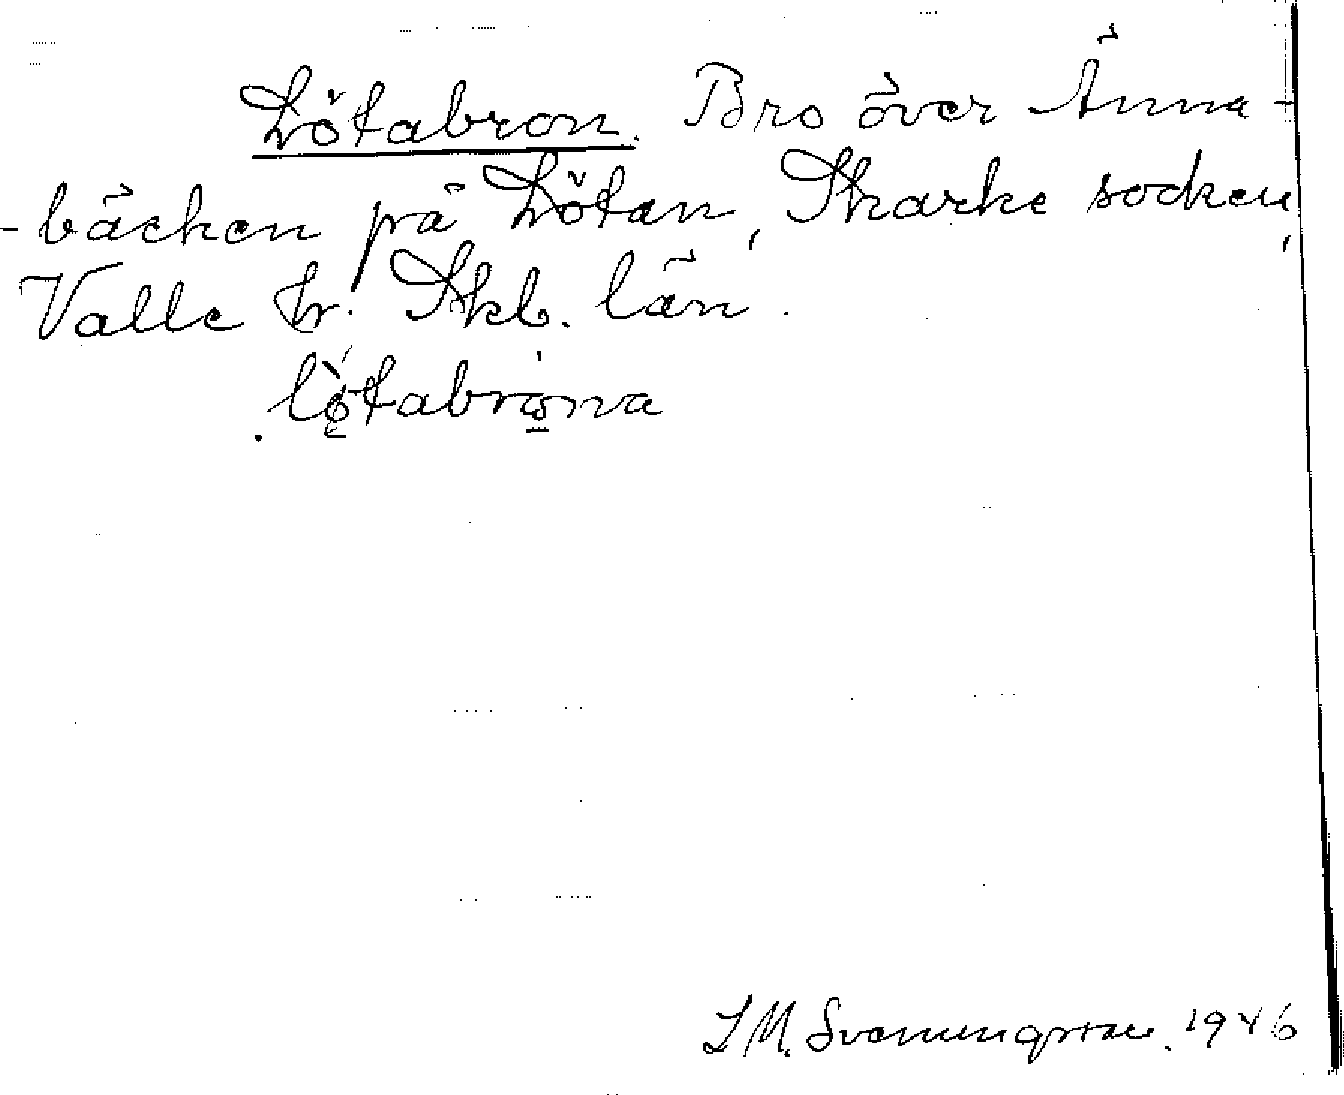 Lötabron. Bro över Änna-
-bäcken på Lötan, Skarke socken,
Valle hr. Skb. län.
lötabrona
J M. Svenungsson. 1946